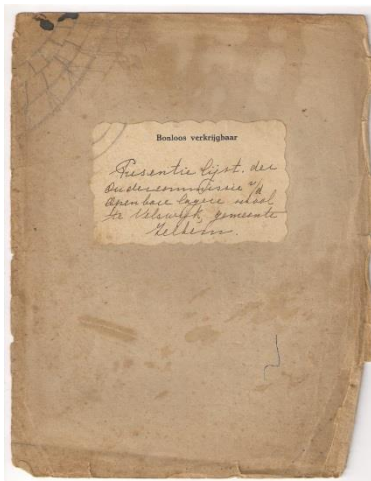 Bonloos verkrijgbaar
Presentie lijst. der
Oudercommissie v/d
Openbare lagere school
te Velswijk, gemeente
Zelhem.